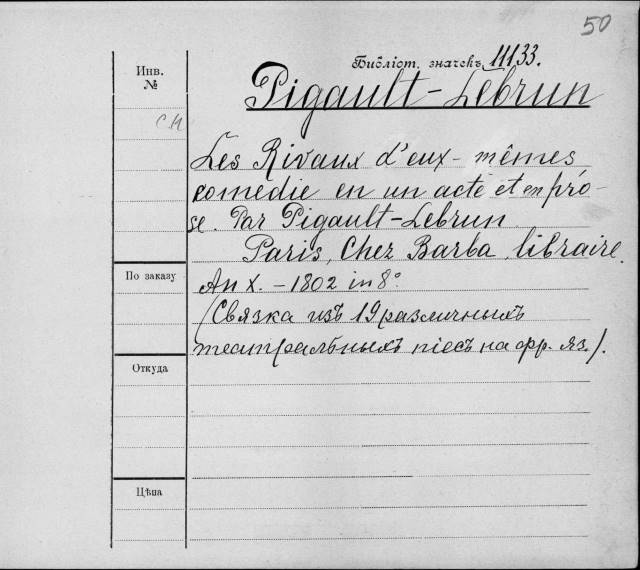 50
Библіот. значекъ 11133.
Инв.
№
Pigault-Lebrun
СИ
Les Rivaux d'eux-mêmes
comédie en un acte et en pro-
se. Par Pigault-Lebrun
Paris, Chez Barba, libraire.
По заказу
An X. - 1802 in 8°
(Связка изъ 19 различныхъ
театральныхъ піесъ на фр. яз.).
Откуда
Цѣна